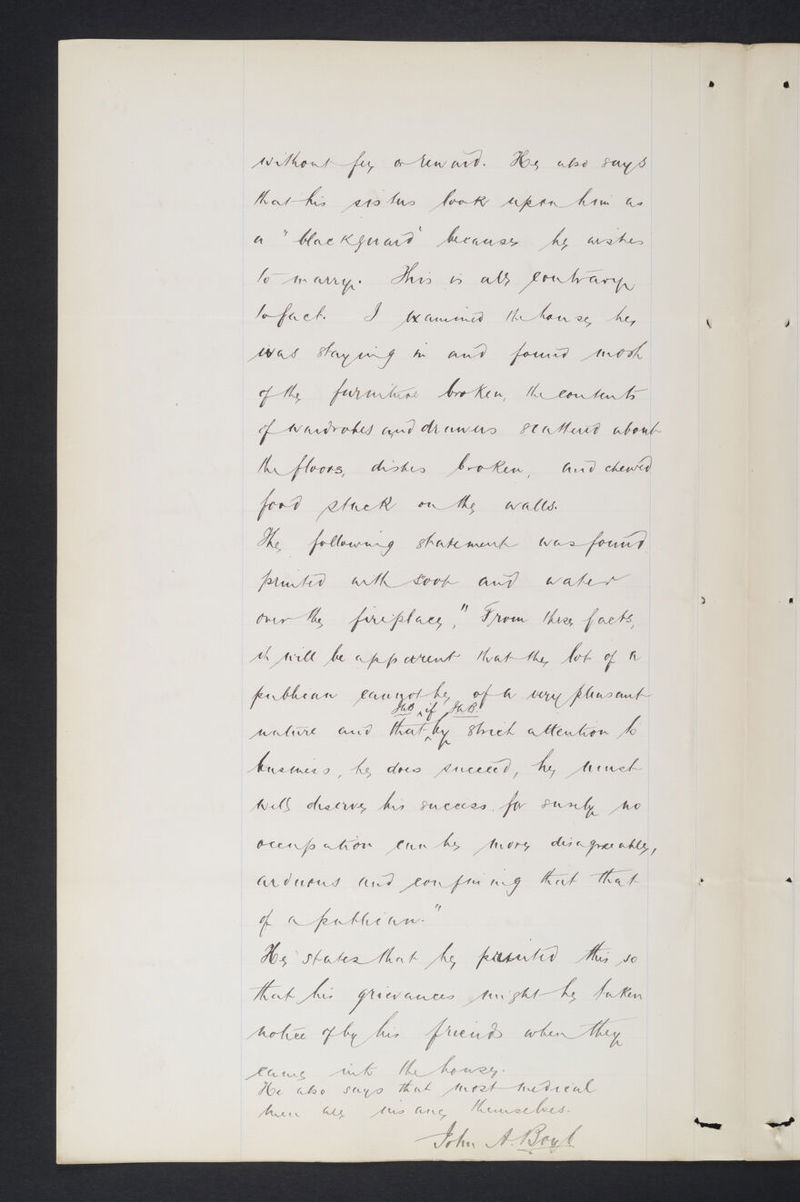 without fee or reward. He also says
that his sisters look upon him as
a "blackguard" because he wishes
to marry. This is all contrary
to fact. I examined the house he
was staying in and found most
of the furniture broken, the contents
of wardrobes and drawers scattered about
the floors, dishes broken, and chewed
food stuck on the walls.
The following statement was found
printed with soot and water
over the fireplace, "From these facts,
it will be apparent that the lot of a
publican cannot be of a very pleasant
JAB if JAB
nature and that by strict attention to
business, he does succeed, he must
well deserve his success for surely no
occupation can be more disagreeable,
arduous and confining that that
of a publican."
He states that he printed this so
that his grievances might be taken
notice of by his friends when they
came into the house.
He also says that most medical
men are insane themselves.
John A. Boyl